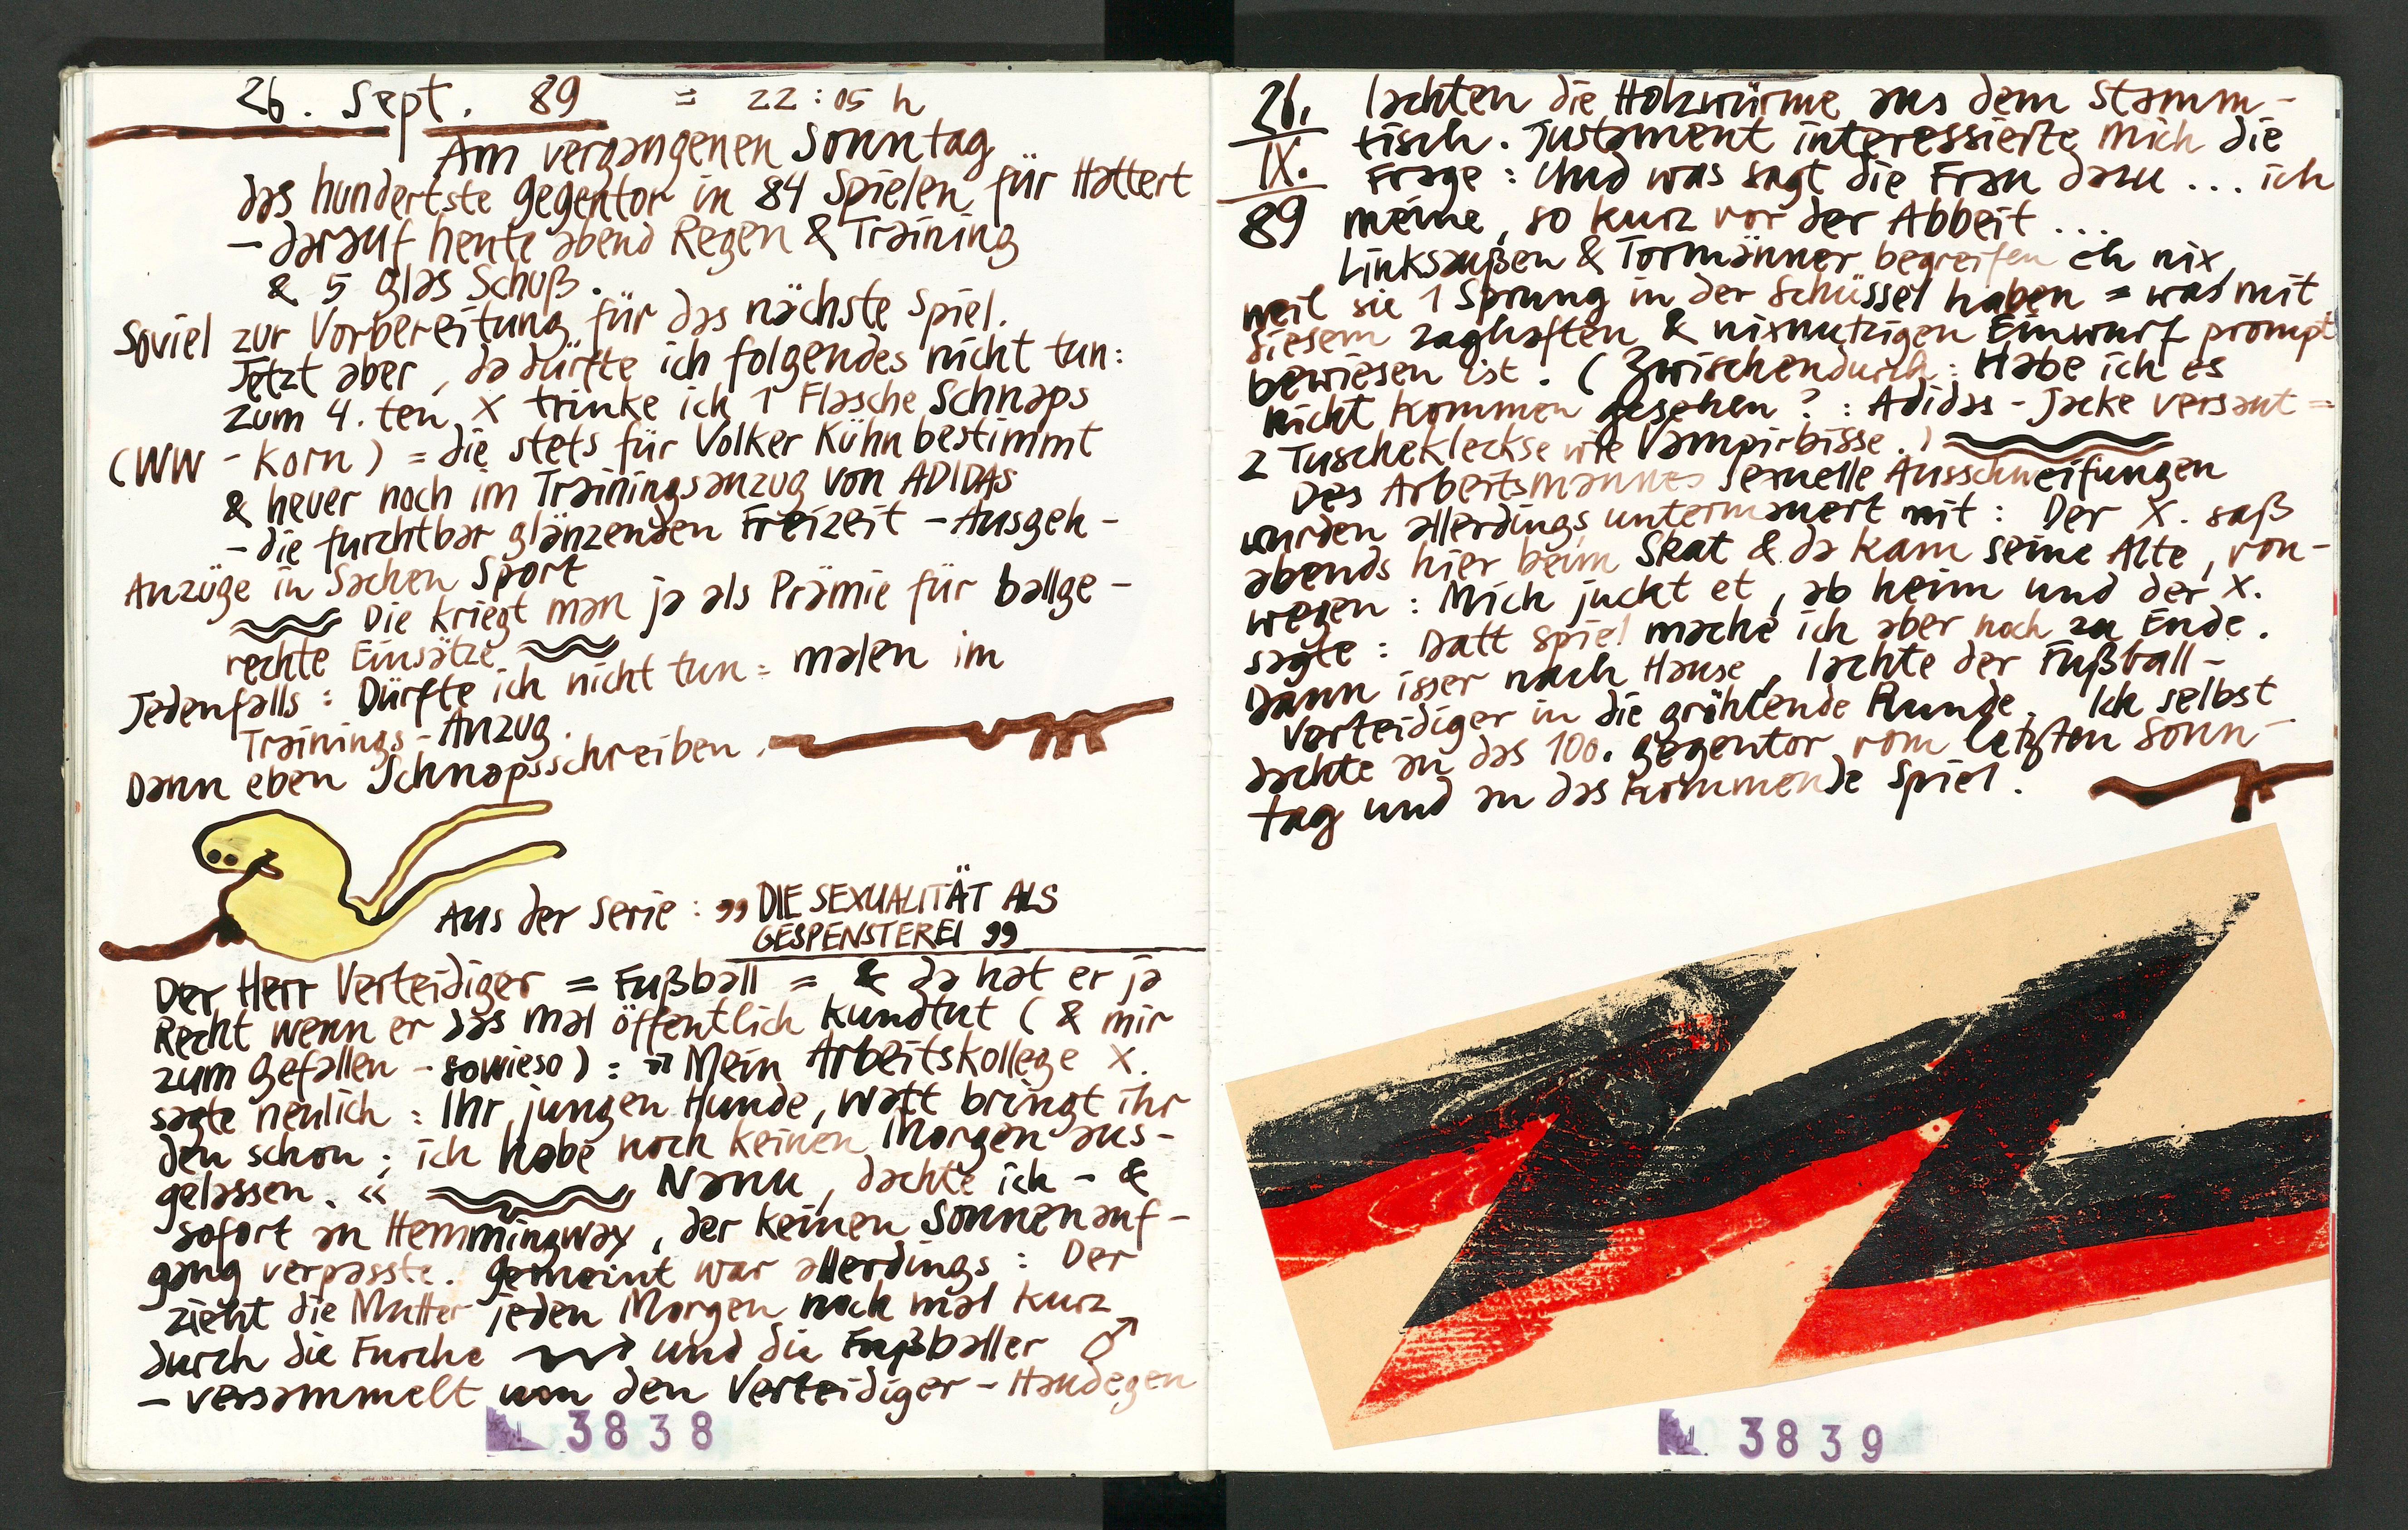 26. Sept. 89 = 22:05 h
Am vergangenen Sonntag
das hundertste Gegentor in 84 Spielen für Hattert
– darauf heute abend Regen & Training
& 5 Glas Schuß.
Soviel zur Vorbereitung für das nächste Spiel.
Jetzt aber, da dürfte ich folgendes nicht tun:
zum 4. ten X trinke ich 1 Flasche Schnaps
(WW - Korn) = die stets für Volker Kühn bestimmt
& hever noch im Trainingsanzug von ADIDAS
– die furchtbar glänzenden Freizeit - Ausgeh -
Anzüge in Sachen Sport
Die kriegt man ja als Prämie für ballge -
rechte Einsätze
Jedenfalls: Dürfte ich nicht tun = malen im
Trainings - Anzug.
Dann eben Schnapsschreiben.
Aus der Serie: „DIE SEXUALITÄT ALS
GESPENSTEREI"
Der Herr Verteidiger = Fußball = & da hat er ja
Recht wenn er das mal öffentlich kundtut (& mir
zum Gefallen - sowieso) : "Mein Arbeitskollege X.
sagte neulich: Ihr jungen Hunde, watt bringt ihr
den schon; ich habe noch keinen Morgen aus-
gelassen. « Nanu, dachte ich - &
sofort an Hemmingway, der keinen Sonnenauf-
gang verpasste. Gemeint war allerdings: Der
zieht die Mutter jeden Morgen noch mal kurz
durch die Furche und die Fußballer ♂
– versammelt von den Verteidiger - Haudegen
3838
26.
IX.
89
lachten die Holzwürme aus dem Stamm-
tisch. Justament interessierte mich die
Frage: Und was sagt die Frau dazu ... ich
meine, so kurz vor der Abbeit ...
Linksaußen & Tormänner begreifen eh nix,
weil sie 1 Sprung in der Schüssel haben = was mit
diesem zaghaften & nixnutzigen Einwurf prompt
bewiesen ist. (Zwischendurch: Habe ich es
nicht kommen gesehen? : Adidas - Jacke versaut =
2 Tuschekleckse wie Vampirbisse.)
Des Arbeitsmannes sexuelle Ausschweifungen
wurden allerdings untermauert mit: Der X. saß
abends hier beim Skat & da kam seine Alte, von-
wegen: Mich juckt et, ab heim und der X.
sagte: Datt Spiel mache ich aber noch zu Ende.
Dann isser nach Hause, lachte der Fußball-
Verteidiger in die gröhlende Runde. Ich selbst
dachte an das 100. Gegentor vom letzten Sonn-
tag und an das kommende Spiel.
3839